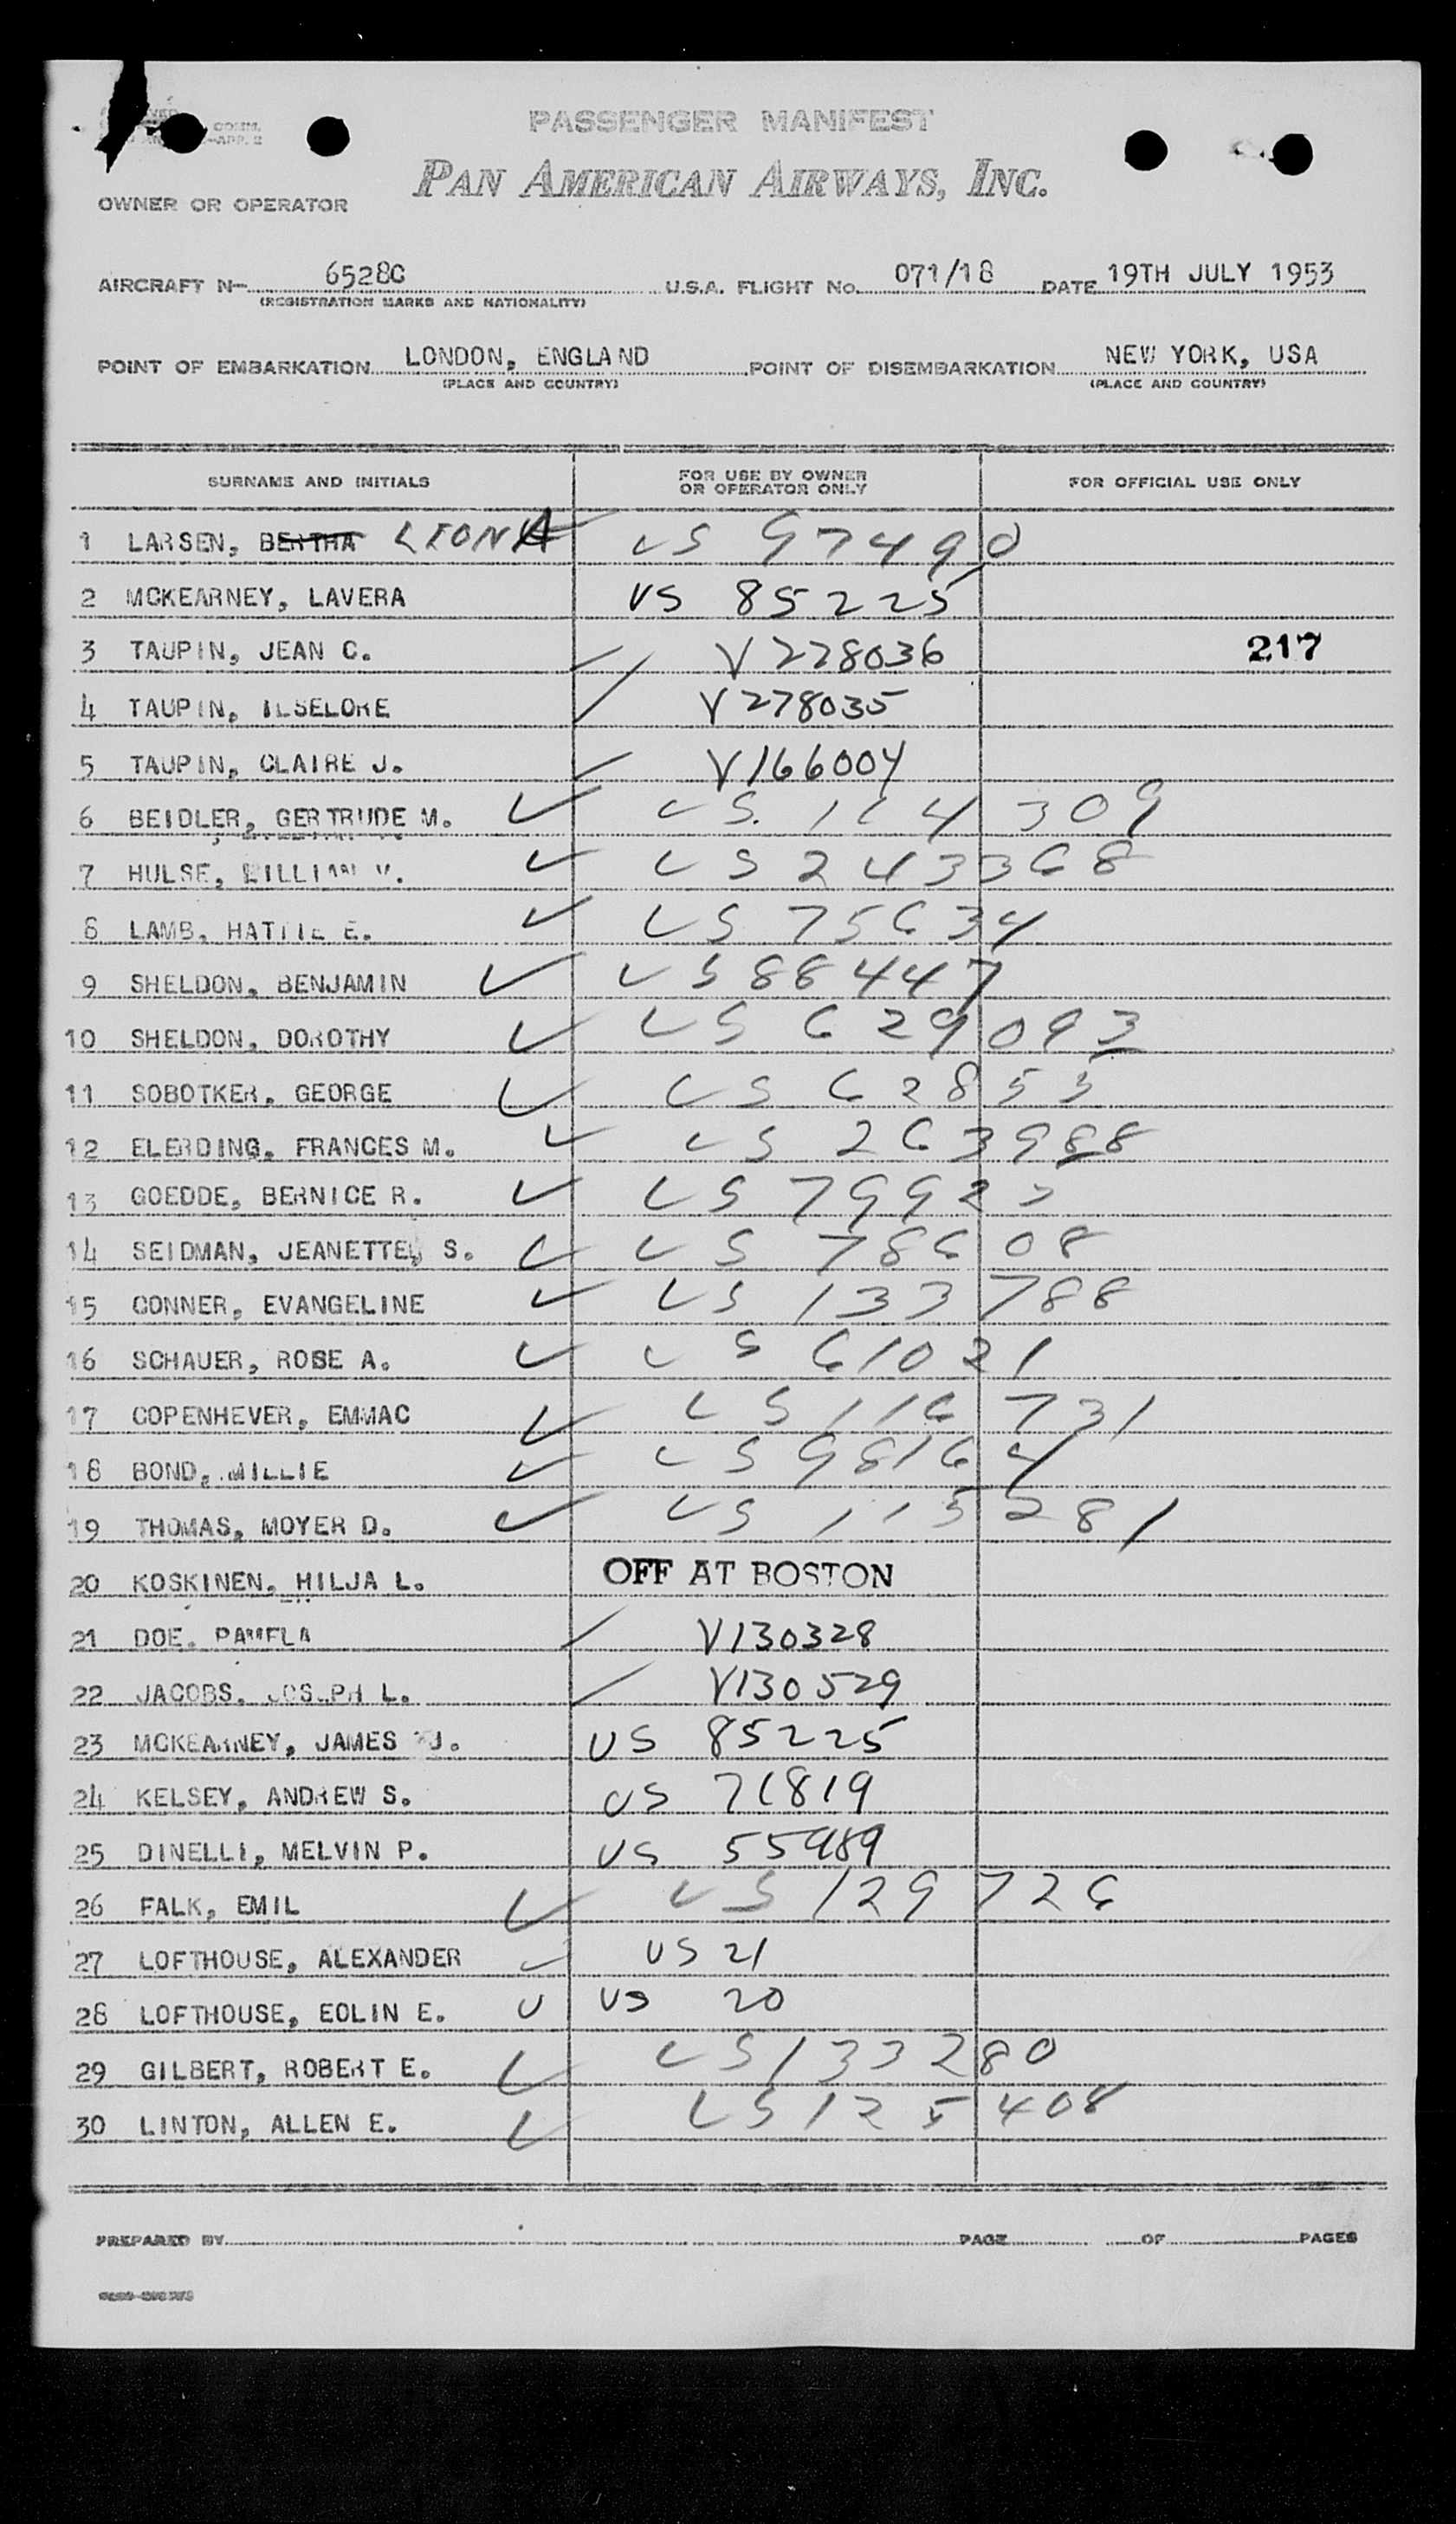 PASSENGER MANIFEST
COMM.
-APP. 2
PAN AMERICAN AIRWAYS, INC.
OWNER OR OPERATOR
AIRCRAFT N- 6528C U.S.A. FLIGHT No. 071/18 DATE 19TH JULY 1953
(REGISTRATION MARKS AND NATIONALITY)
POINT OF EMBARKATION LONDON, ENGLAND POINT OF DISEMBARKATION NEW YORK, USA
(PLACE AND COUNTRY) (PLACE AND COUNTRY)
SURNAME AND INITIALS FOR USE BY OWNER OR OPERATOR ONLY FOR OFFICIAL USE ONLY
1 LARSEN, BERTHA LEONA US 97490
2 MCKEARNEY, LAVERA US 85225
3 TAUPIN, JEAN C. V 228036 217
4 TAUPIN, ILSELORE V 278035
5 TAUPIN, CLAIRE J. V166004
6 BEIDLER, GERTRUDE M. US. 164309
7 HULSE, V. US 243368
8 LAMB, HATTIE E. US 75634
9 SHELDON, BENJAMIN US 88447
10 SHELDON, DOROTHY US 629093
11 SOBOTKER, GEORGE US 62855
12 ELERDING, FRANCES M. US 263988
13 GOEDDE, BERNICE R. US
14 SEIDMAN, JEANETTE, S. US 78608
15 CONNER, EVANGELINE US 133788
16 SCHAUER, ROSE A. US 61021
17 COPENHEVER, EMMAC US 116731
18 BOND, MILLIE US 98164
19 THOMAS, MOYER D. US 115281
20 KOSKINEN, HILJA L. OFF AT BOSTON
21 DOE, PAMELA V130328
22 JACOBS, JOSEPH L. V130529
23 MCKEARNEY, JAMES J. US 85225
24 KELSEY, ANDREW S. US 71819
25 DINELLI, MELVIN P. US 55989
26 FALK, EMIL US 129726
27 LOFTHOUSE, ALEXANDER US 21
28 LOFTHOUSE, EOLIN E. US 20
29 GILBERT, ROBERT E. US 133280
30 LINTON, ALLEN E. US 125408
PREPARED BY PAGE OF PAGES